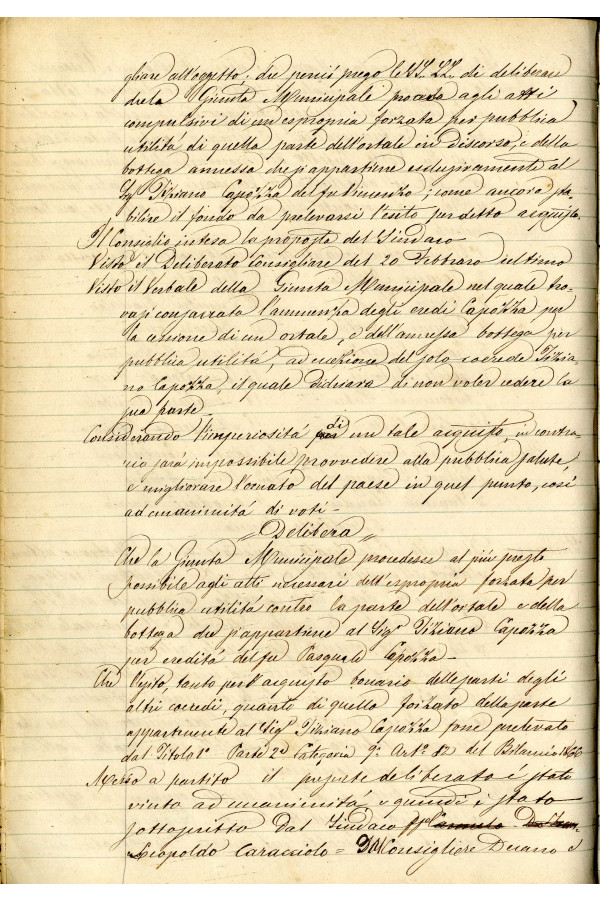 gliare all'oggetto; che perciò prego le SS. LL. di deliberare
che la Giunta Municipale proceda agli atti
compulsivi di una espropria forzata per pubblica
utilità di quella parte dell'ortale in discorso, e della
bottega annessa che si appartiene esclusivamente al
Sig. Tiziano Capozza del fu Vincenzo; come ancora sta-
bilire il fondo da prelevarsi l'esito per detto acquisto.
Il Consiglio intesa la proposta del Sindaco
Visto il Deliberato Consigliare del 20 Febbraro ultimo
Visto il Verbale della Giunta Municipale nel quale tro-
vasi consacrata l'annuenza degli eredi Capozza per
la cessione di un ortale, e dell'annessa bottega per
pubblica utilità, ad eccezione del solo coerede Tizia-
no Capozza, il quale dichiara di non voler cedere la
sua parte
Considerando l'imperiosità di un tale acquisto, in contra-
rio sarà impossibile provvedere alla pubblica salute,
e migliorare l'ornato del paese in quel punto, così
ad unanimità di voti -
" Delibera "
Che la Giunta Municipale procedesse al più presto
possibile agli atti necessari dell'espropria forzata per
pubblica utilità contro la parte dell'ortale e della
bottega che si appartiene al Sigr Tiziano Capozza
per eredità del fu Pasquale Capozza -
Che l'esito, tanto per l'acquisto bonario delle parti degli
altri coeredi, quanto di quello forzato della parte
appartenente al Sigr Tiziano Capozza fosse prelevato
dal Titolo 1° Parte 2a Categoria 9a Arto 12 del Bilancio 1866
Messo a partito il presente deliberato è stato
vinto ad unanimità e quindi è stato
sottoscritto dal Sindaco
Leopoldo Caracciolo = Dal Consigliere Decano e